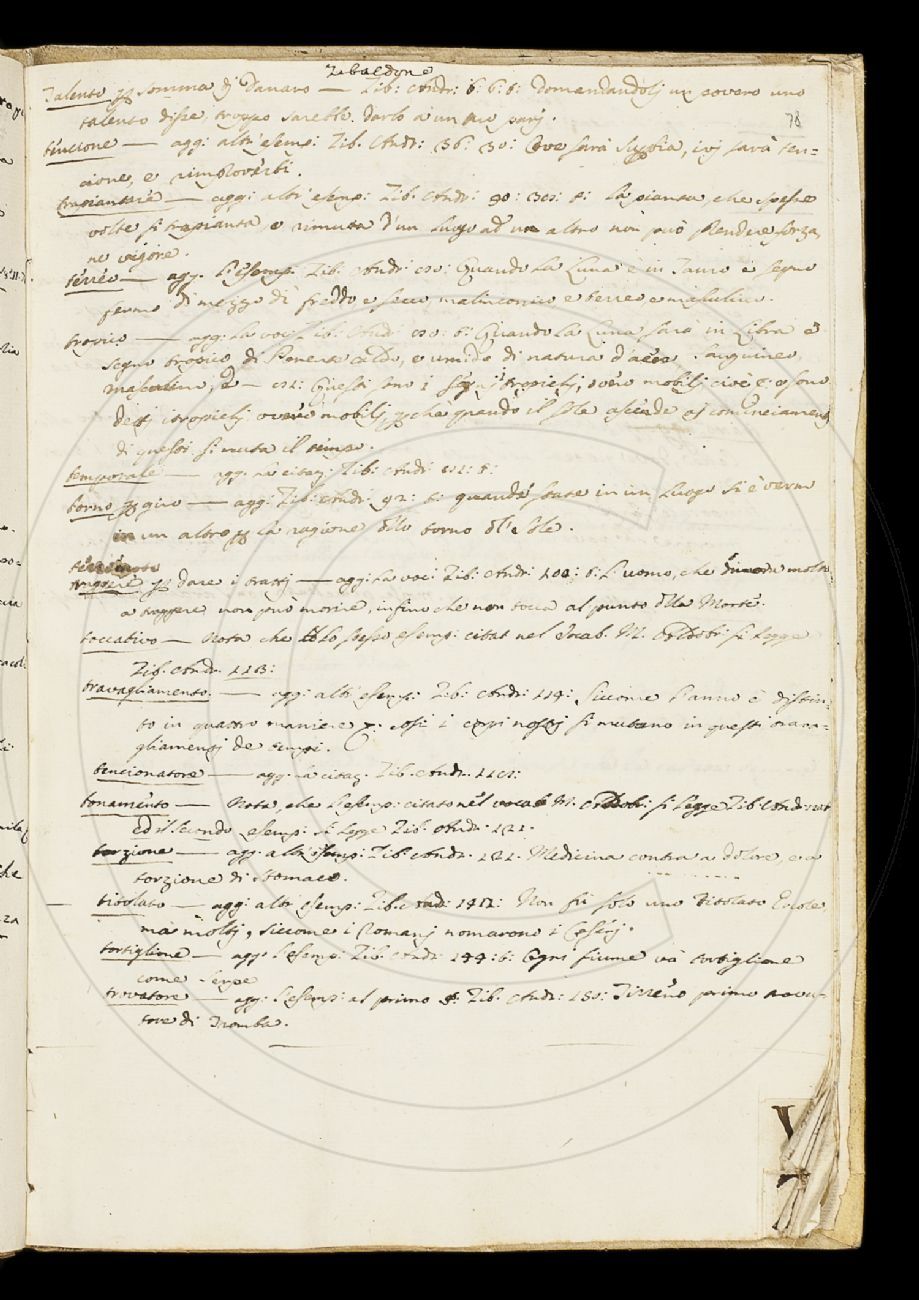 Zibaldone
Talento per somma di Danaro — Zib: Andr: 6: 6: 6: Domandandoli un povero uno
talento disse, troppo sarebbe darlo à un tuo parj.
78
tencione — agg: altr'esemp: Zib. Andr: 36: 30: Ove sarà superbia, ivj sarà ten=
cione, e rimproverbi.
trapiantare — agg: altr'esemp: Zib: Andr: 90: La pianta che spesse
volte si trapianta e rimuta d'un luogo ad un altro non può prendere forza,
ne vigore.
terreo — agg. l'esemp: Zib. Andr: Quando la Luna è in Tauro è segno
fermo di mezzo dì freddo e secco, malinconico e terreo e
tropico — agg: la voc: Zib: Andr: Quando la Luna sarà in Libra è
segno tropico di Ponente caldo, e umido di natura d'aere, sanguineo,
mascolino, Questi sono i segni tropicj, overo mobilj cioè e sono
dettj tropicj overo mobilj, perchè quando il sole ascende al cominciamento
di questi si muta il tempo.
temporale — agg: la citaz: Zib: Andr:
torno per giro — agg: Zib: Andr: 92: quando state in un luogo si è verno
in un altro per la ragione dello torno del sole.
per dare i tratti — agg: la voc: Zib: Andr: 108: 6: L'uomo, che dimora molto
a non può morire, infino che non tocca al punto della Morte.
toccativo — Nota che lo stesso esemp: citat nel Vocab. M. si legge
Zib. Andr. 113:
travagliamento. — agg: altr'esemp: Zib: Andr: 114: Siccome l'anno è distin=
to in quattro maniere così i corpi nostrj si mutano in questi trava=
gliamentj de tempi.
tencionatore — agg: la citaz. Zib. Andr.
tonamento — Nota, che l'esemp: citato nel vocab M. si legge Zib: Andr
ed il secondo esemp: si legge Zib: Andr: 121.
torzione — agg: altr'esemp: Zib. Andr. 121. Medicina contra a dolore, e a
torzione di stomaco.
titolato — agg: altr esemp: Zib. Andr: Non fù solo uno titolato Ercole
mà moltj, siccome i Romanj nomarono i Cesarj.
tortiglione — agg: l'esemp: Zib: Andr: 144: 6: Ogni fiume và tortiglione
come serpe
trovatore — agg: l'esemp: al primo §: Zib: Andr: 150: Tirreno primo trova=
tore di Tromba.